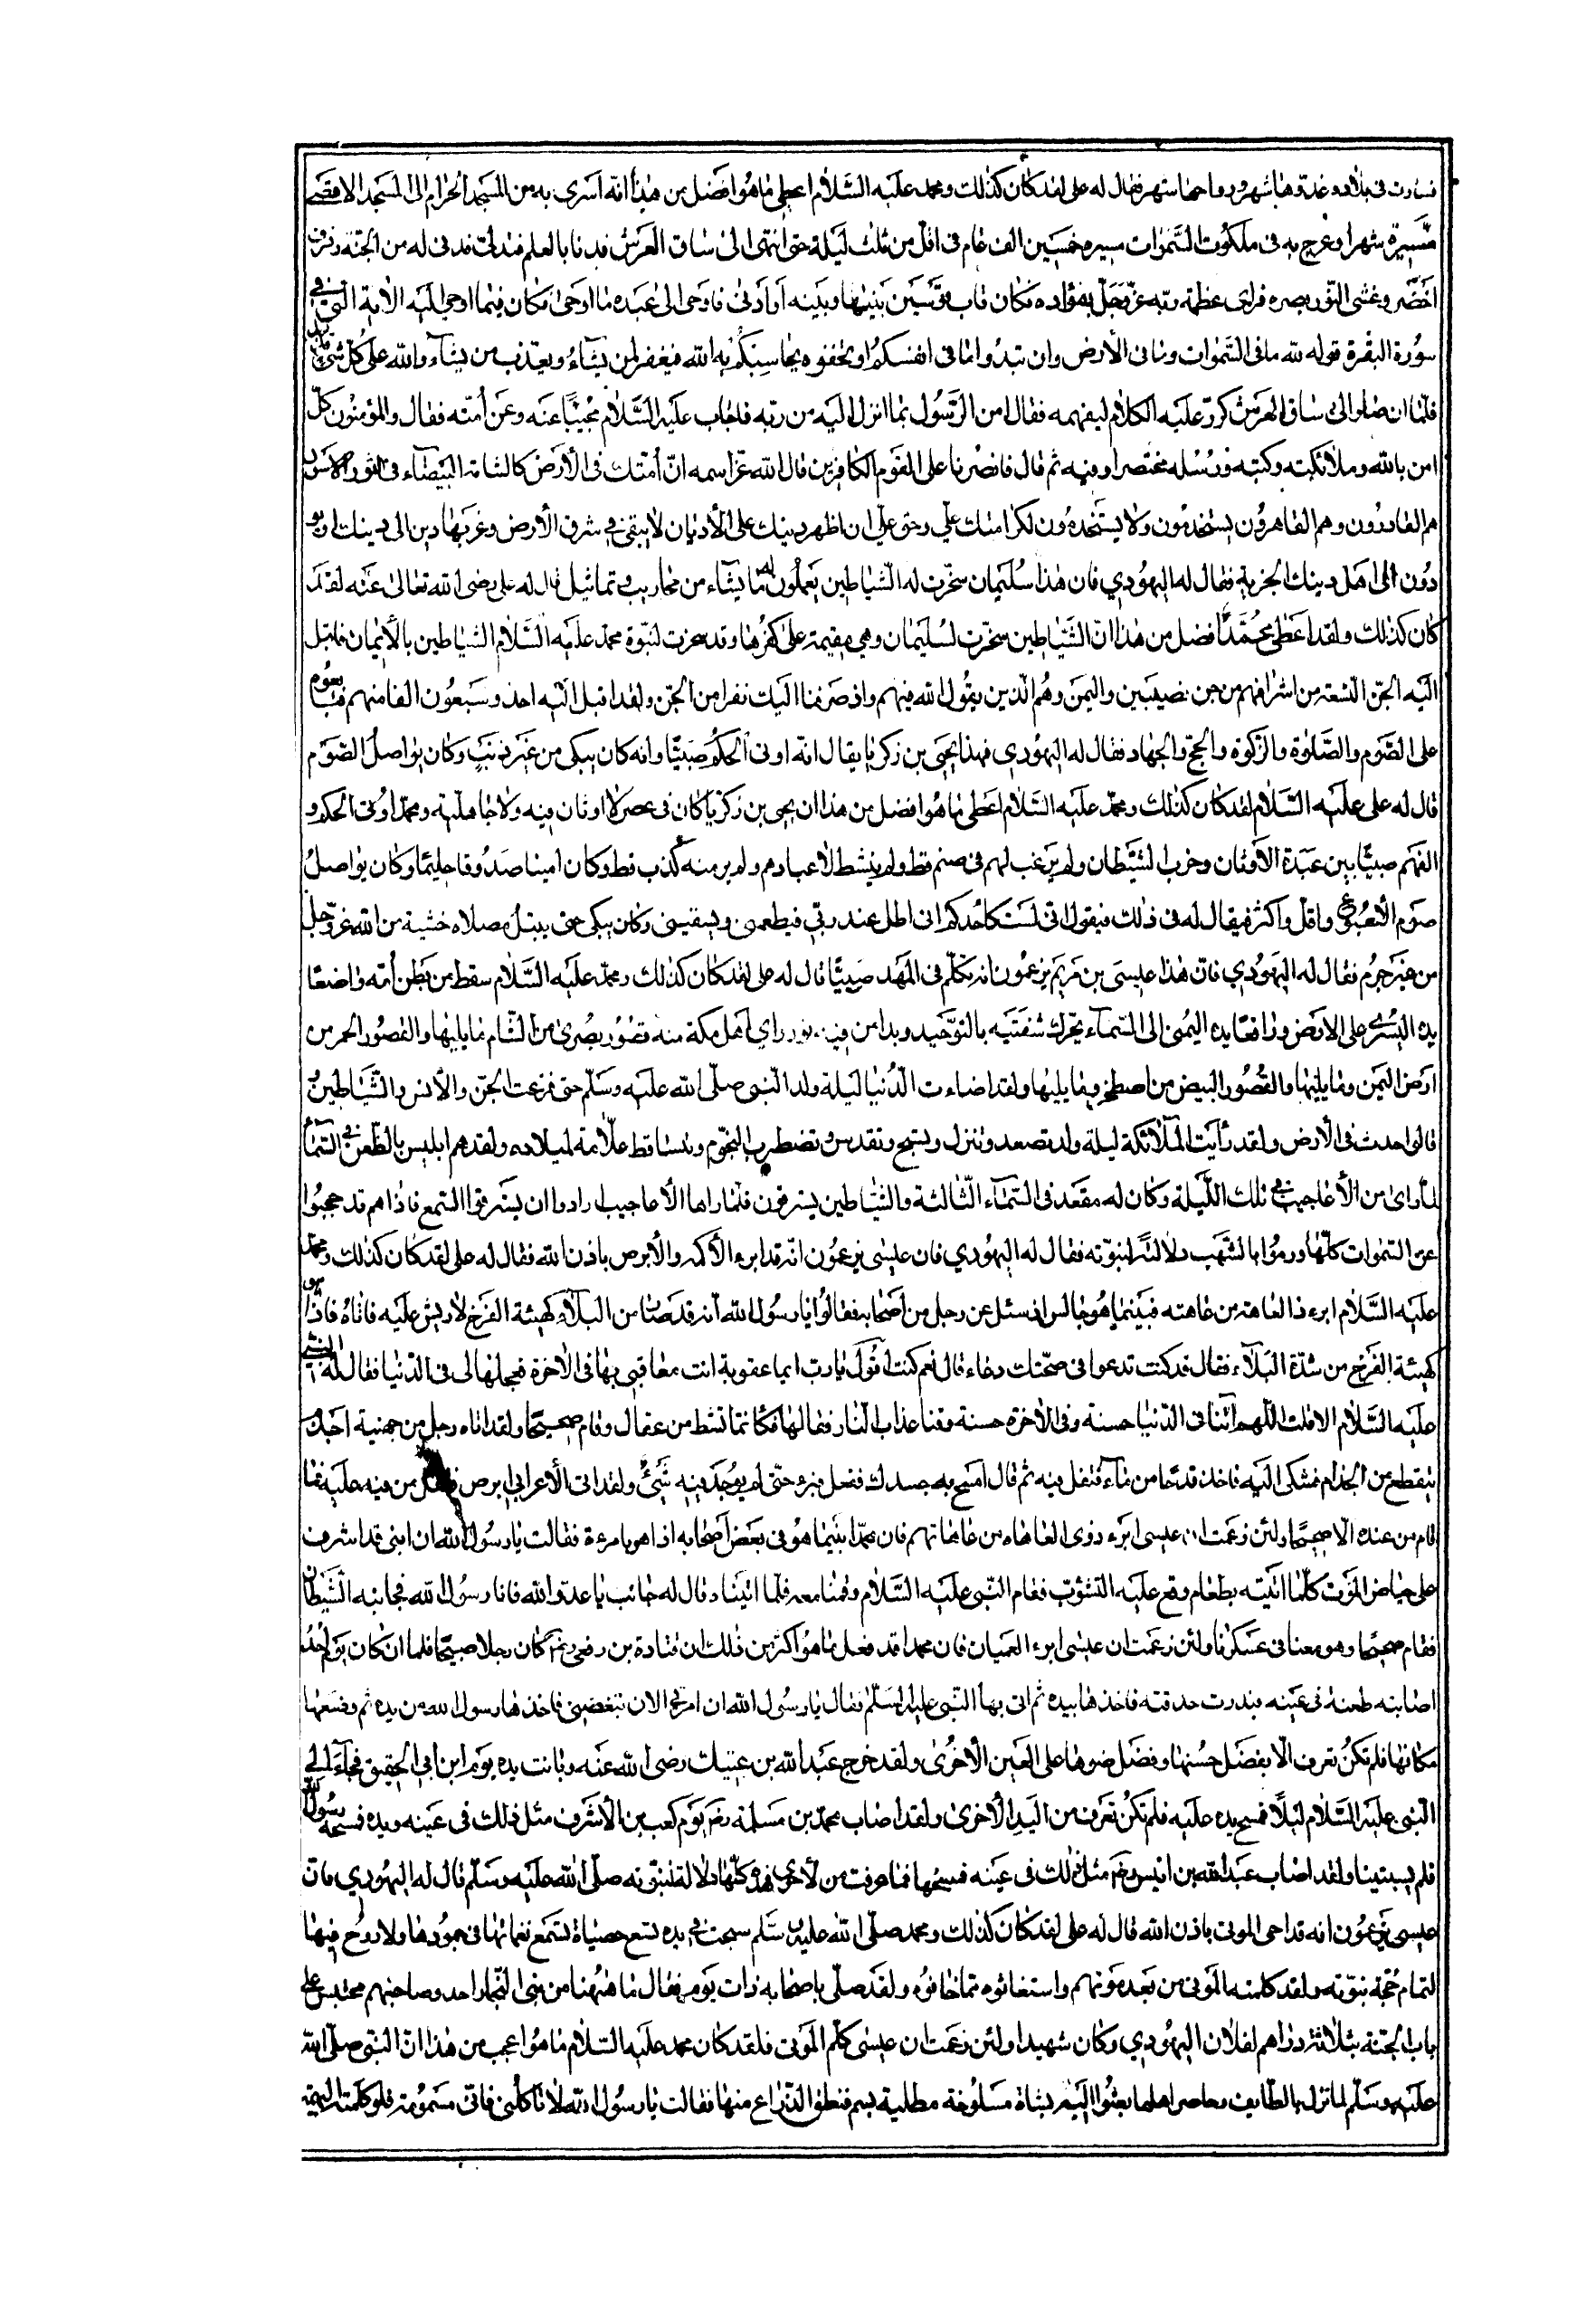 فسارت فى بلاده غدوها شهر ورواحها شهر فقال له على لقد كان كذلك ومحمد عليه السّلام اعطى ما هو افضل من هذا انّه اسرى به من المسجد الحرام الى المسجد الاقصى
مسيرة شهر او عرج به فى ملكوت السّموات مسيره خمسين الف عام فى اقلّ من ثلث ليلة حتى انتهى الى ساق العرش فدنا بالعلم فتدلى فدنى له من الجنّة رفرف
اخضر وغشى النّور بصره فراى عظمة ربّه عزّ وجلّ بفؤاده فكان قاب قوسين بينها وبينه او ادنى فاوحى الى عبده ما اوحى فكان فيما اوحى اليه الاية التى فى
سورة البقرة قوله لله ما فى السّموات وما فى الأرض وان تبدوا ما فى انفسكم او تخفوه يحاسبكم به الله فيغفر لمن يشاء ويعذّب من يشاء والله على كلّ شئ قدير
فلما ان صار الى ساق العرش كرّر عليه الكلام ليفهمه فقال امن الرّسول بما انزل اليه من ربّه فاجاب عليه السّلام مجيبا عنه وعن أمته فقال والمؤمنون كلّ
امن بالله وملائكته وكتبه ورسله مختصرا وفيه ثم قال فانصرنا على القوم الكافرين قال الله عزّ اسمه انّ أمتك فى الأرض كالشاة البيضاء فى الثور الاسود
هم القادرون وهم القاهرون يستخدمون ولا يستخدمون لكرامتك علىّ وحق علىّ ان اظهر دينك على الأديان لا يبقى فى شرق الأرض وغربها دين الى دينك او يؤ
دون الى اهل دينك الجزية فقال له اليهودي فان هذا سليمان سخّرت له الشّياطين يعملون له ما يشاء من محاريب وتماثيل قال له على رضى الله تعالى عنه لقد
كان كذلك ولقد اعطى محمّد افضل من هذا انّ الشّياطين سخّرت لسليمان وهى مقيمة على كفرها وقد سخرت لنبوّة محمّد عليه السّلام الشياطين بالأيمان فاقبل
اليه الجنّ التسعة من اشرافهم من جن نصيبين واليمن وهم الّذين يقول الله فيهم واذ صرفنا اليك نفرا من الجن ولقد اقبل اليه احد وسبعون الفا منهم فبايعوه
على الصّوم والصّلوة والزّكوة والحجّ والجهاد فقال له اليهودي فهذا يحيى بن زكريا يقال انّه اوتى الحكم صبيّا وانه كان يبكى من غير ذنب وكان يواصل الصّوم
قال له على عليه السّلام لقد كان كذلك ومحمّد عليه السّلام اعطى ما هو افضل من هذا ان يحيى بن زكريا كان فى عصر لا اوثان فيه ولا جاهلية ومحمّد اوتى الحكم و
الفهم صبيّا بين عبدة الأوثان وحزب الشيّطان ولم يرغب لهم فى صنم قط ولم ينشط لأعيادهم ولم ير منه كذب قط وكان امينا صدوقا حليما وكان يواصل
صوم الأسبوع واقلّ واكثر فيقال له فى ذلك فيقول انّى لست كأحدكم انى اظل عند ربّى فيطعمنى ويسقينى وكان يبكى حتى يبتلّ مصلاه خشية من الله عزّ وجلّ
من غير جرم فقال له اليهودي فانّ هذا عيسى بن مريم يزعمون انه تكلّم فى المهد صبيّا قال له على لقد كان كذلك ومحمّد عليه السّلام سقط من بطن أمّه واضعا
يده اليسرى على الارض ورافعا يده اليمنى الى السّماء يحرّك شفتيه بالتّوحيد وبدا من فيه نور راى اهل مكة منه قصور بصرى من الشّام وما يليها والقصور الحمر من
ارض اليمن وما يليها والقصور البيض من اصطخر وما يليها ولقد اضاءت الدّنيا ليلة ولد النّبى صلّى الله عليه وسلّم حتى فزعت الجنّ والأنس والشّياطين و
قالوا حدث فى الأرض ولقد رأيت الملائكة ليلة ولد تصعد وتنزل وتسبح وتقدس وتضطرب النّجوم وتتساقط علامة لميلاده ولقد هم ابليس بالظّعن فى السّماء
لما راى من الأعاجيب فى تلك اللّيلة وكان له مقعد فى السّماء الثّالثة والشّياطين يسترقون فلما راها الأعاجيب ارادوا ان يسترقوا السّمع فاذا هم قد حجبوا
عن السّموات كلّها ورموا بالشّهب دلالة لنبوّته فقال له اليهودي فان عيسى يزعمون انّه قد ابرء الأكمه والأبرص باذن الله فقال له على لقد كان كذلك ومحمد
عليه السّلام ابرء ذا العاهة من عاهته فبينما هو جالس اذ سئل عن رجل من أصحابه فقالوا يا رسول الله انه قد صار من البلاء كهيئة الفرخ لا ريش عليه فاتاه فاذا هو
كهيئة الفرخ من شدّة البلاء فقال قد كنت تدعوا فى صحّتك دعاء قال نعم كنت اقول يا ربّ ايما عقوبة انت معاقبى بها فى الأخرة فعجلها لى فى الدّنيا فقال له النبى
عليه السّلام الا قلت اللّهم اتنا فى الدّنيا حسنة وفى الأخرة حسنة وقنا عذاب النار فقالها فكأنما نشط من عقال وقام صحيحا ولقد اتاه رجل من جهنية اجذم
يتقطع من الجذام فشكى اليه فاخذ قدحا من ماء فتفل فيه ثم قال امسح به جسدك ففعل فبرء حتّى لم يوجد فيه شئ ولقد اتى الأعرابى ابرص فتفل من فيه عليه فما
قام من عنده الا صحيحا ولئن زعمت ان عيسى ابرء ذوى العاهات من عاهاتهم فان محمّدا بينما هو فى بعض اصحابه اذا هو بامرءة فقالت يا رسول الله ان ابنى قد اشرف
على حياض الموت كلّما اتيته بطعام وقع عليه التثاؤب فقام النّبى عليه السّلام وقمنا معه فلمّا اتيناه قال له جانب يا عدو الله فانا رسول الله فجانبه الشّيطان
فقام صحيحا وهو معنا فى عسكرنا ولئن زعمت ان عيسى ابرء العميان فان محمدا قد فعل ما هو اكثر من ذلك ان قتادة بن ربعى كان رجلا صبيحا فلما ان كان يوم أحد
اصابته طعنة فى عينه فبدرت حدقته فاخذها بيده ثم اتى بها النّبى عليه السّلم فقال يا رسول الله ان امرئتى الان تبغضنى فاخذها رسول الله من يده ثم وضعها
مكانها فلم تكن تعرف الّا بفضل حسنها وفضل ضوءها على العين الأخرى ولقد خرج عبد الله بن عتيك رضى الله عنه وبانت يده يوم ابن ابى الحقيق فجاء الى
النّبى عليه السّلام ليلا فمسح يده عليه فلم تكن تعرف من اليد الأخرى ولقد اصاب محمّد بن مسلمة يوم كعب بن الأشرف مثل ذلك فى عينه ويده فمسحه رسول الله
فلم يستبينا ولقد اصاب عبد الله بن انيس مثل ذلك فى عينه فمسحها فما عرفت من الأخرى فهذه كلّها دلالة لنبوّته صلّى الله عليه وسلّم قال له اليهودي فانّ
عيسى يزعمون انه قد احى الموتى باذن الله قال له على لقد كان كذلك ومحمد صلّى الله عليه وسلّم سبحت فى يده تسع حصياة تسمع نغماتها فى جمودها ولا روح فيها
لتمام حجّة نبوّته ولقد كلمته الموتى من بعد موتهم واستغاثوه مما خافوه ولقد صلّى باصحابه ذات يوم فقال ما ههنا من بنى النّجار احد وصاحبهم محتبس على
باب الجنّة بثلاثة دراهم لفلان اليهودي وكان شهيدا ولئن زعمت ان عيسى كلّم الموتى فلقد كان محمد عليه السّلام ما هو اعجب من هذا انّ النّبى صلّى الله
عليه وسلّم لما نزل بالطّايف وحاصر اهلها بعثوا اليه بشاة مسلوخة مطلية بسم فنطق الذّراع منها فقالت يا رسول الله لا تأكلنى فانّى مسمومة فلو كلمته البهيمة